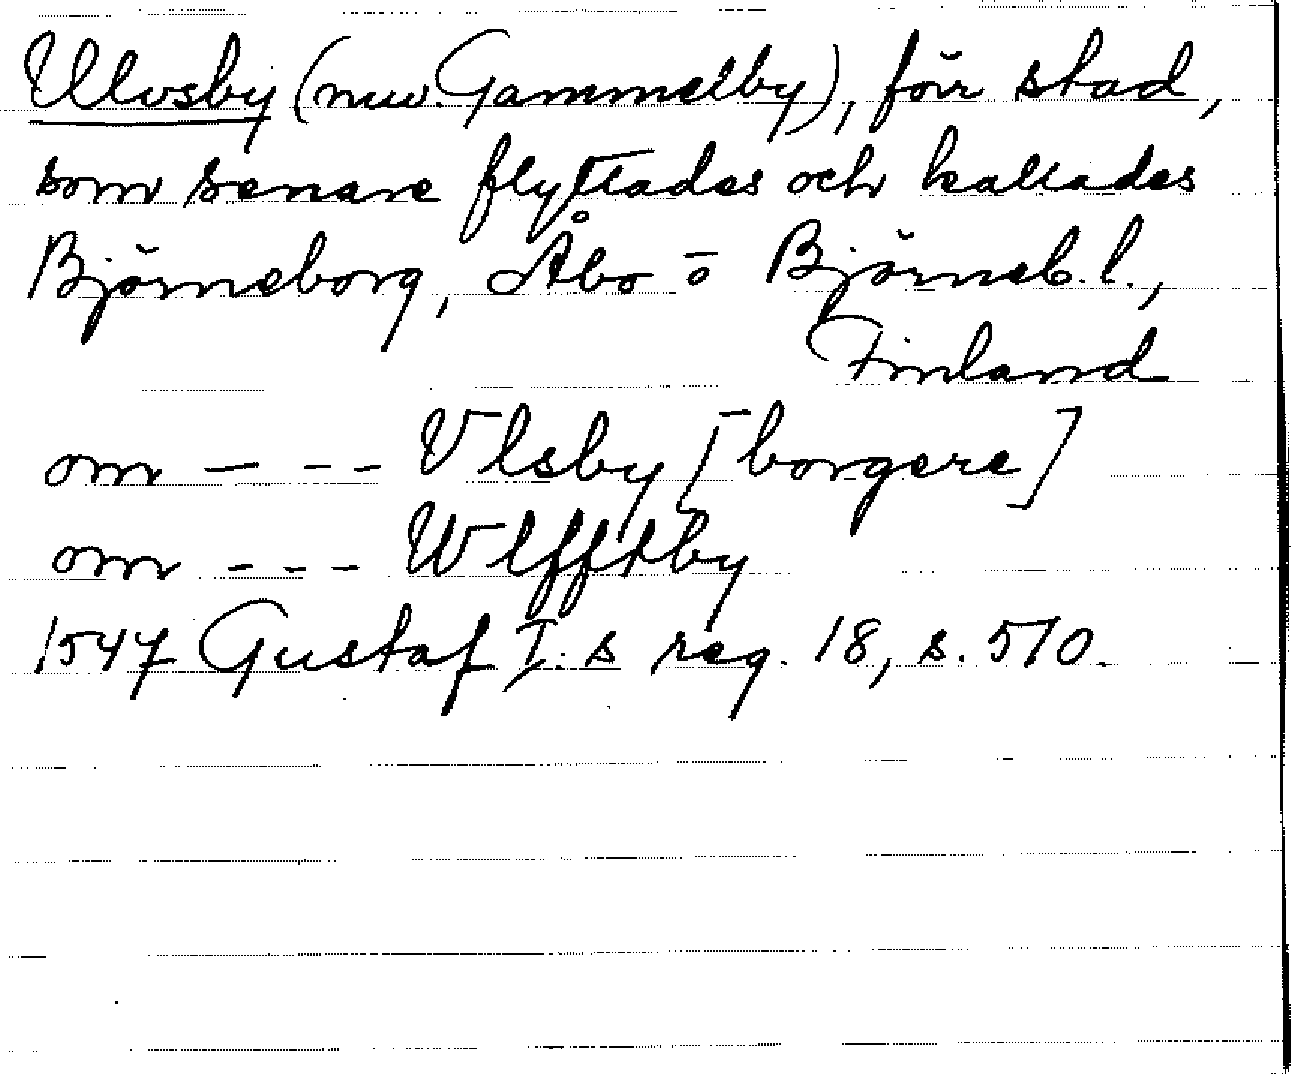 Ulvsby (nuv. Gammelby), förr stad,
som senare flyttades och kallades
Björneborg, Åbo o Björneb. l.,
Finland
om — - - Vlsby [borgere]
om - - - Wlfftby
1547 Gustaf I. s reg. 18, s. 570.